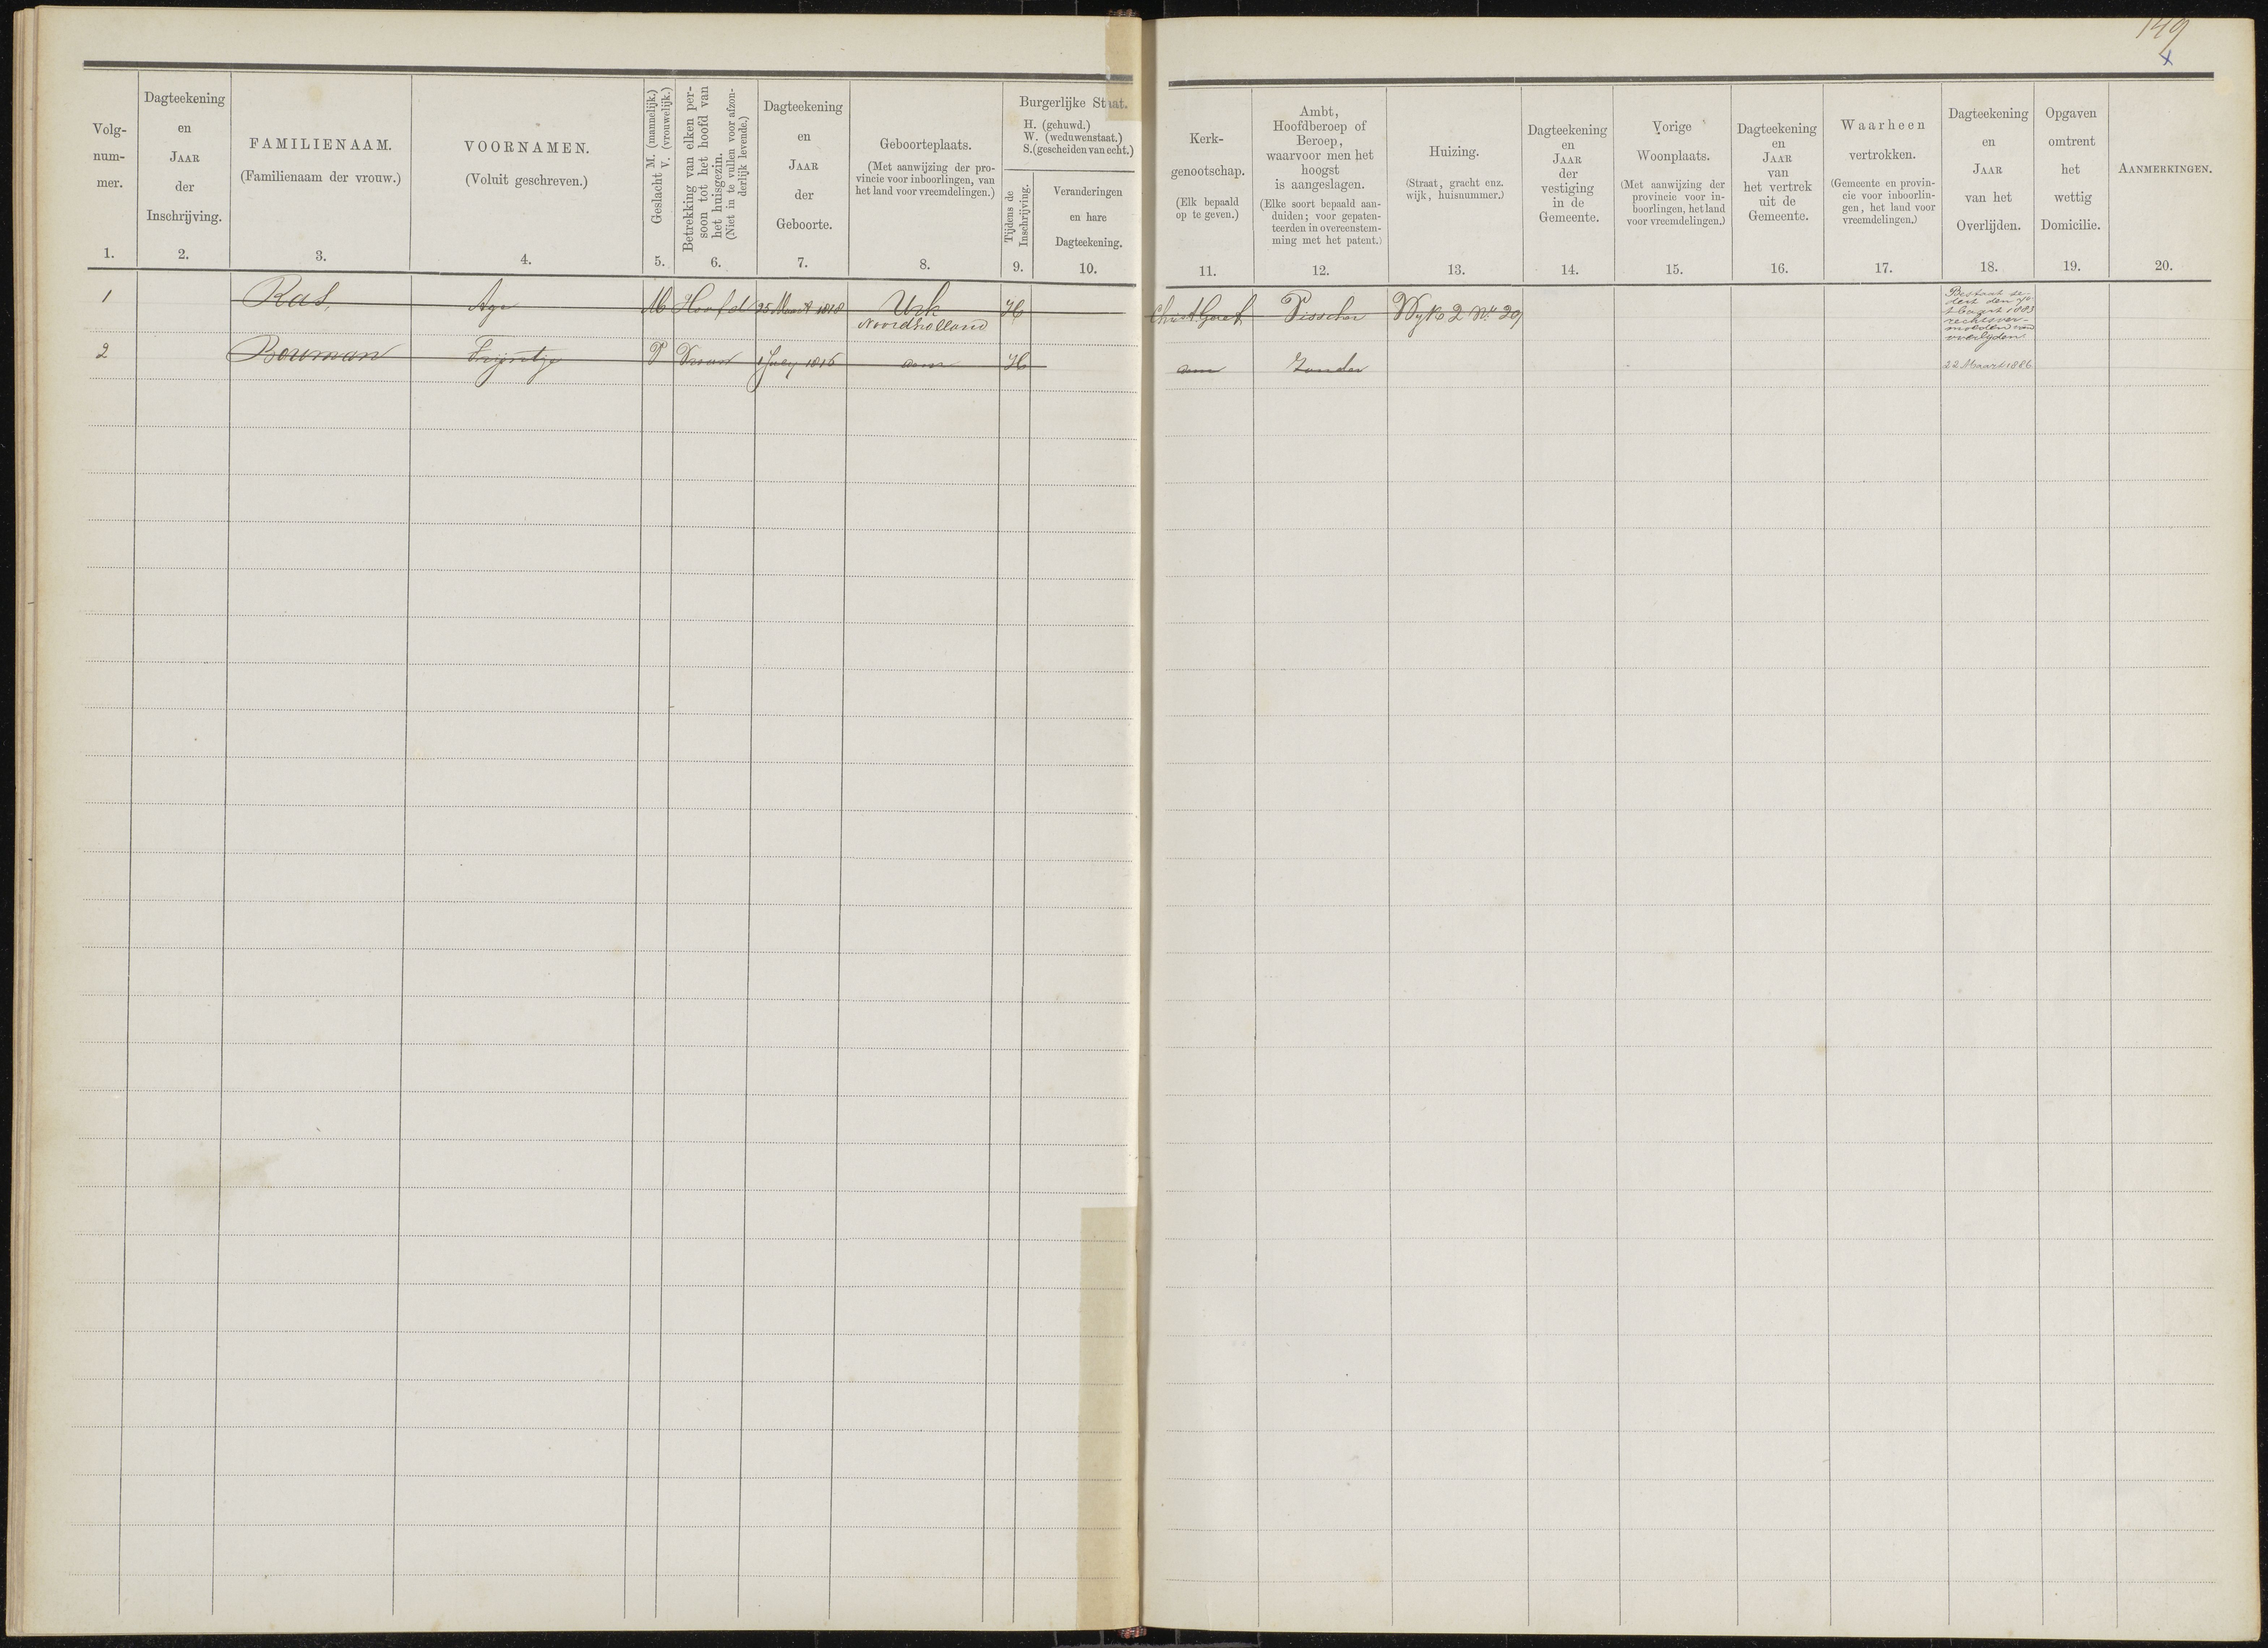 149
x
Volg-
num-
mer.
1.
Dagteekening
en
JAAR
der
Inschrijving.
2.
FAMILIENAAM.
(Familienaam der vrouw.)
3.
VOORNAMEN.
(Voluit geschreven.)
4.
Geslacht M. (mannelijk.)
V. (vrouwelijk.)
5.
Betrekking van elken per-
soon tot het hoofd van
het huisgezin.
(Niet in te vullen voor afzon-
derlijk levende.)
6.
Dagteekening
en
JAAR
der
Geboorte.
7.
Geboorteplaats.
(Met aanwijzing der pro-
vincie voor inboorlingen, van
het land voor vreemdelingen.)
8.
Burgerlijke Staat.
H. (gehuwd.)
W. (weduwenstaat.)
S. (gescheiden van echt.)
Tijdens de
Inschrijving.
9.
Veranderingen
en hare
Dagteekening.
10.
Kerk-
genootschap.
(Elk bepaald
op te geven.)
11.
Ambt,
Hoofdberoep of
Beroep,
waarvoor men het
hoogst
is aangeslagen.
(Elke soort bepaald aan-
duiden; voor gepaten-
teerden in overeenstem-
ming met het patent.)
12.
Huizing.
(Straat, gracht enz.
wijk, huisnummer.)
13.
Dagteekening
en
JAAR
der
vestiging
in de
Gemeente.
14.
Vorige
Woonplaats.
(Met aanwijzing der
provincie voor in-
boorlingen, het land
voor vreemdelingen.)
15.
Dagteekening
en
JAAR
van
het vertrek
uit de
Gemeente.
16.
Waarheen
vertrokken.
(Gemeente en provin-
cie voor inboorlin-
gen, het land voor
vreemdelingen.)
17.
Dagteekening
en
JAAR
van het
Overlijden.
18.
Opgaven
omtrent
het
wettig
Domicilie.
19.
AANMERKINGEN.
20.
1 Ras, Age M Hoofd 25 Maart 1818 Urk
Noordholland
H Visscher Wyk 2 No 29
Bestaat se-
dert den
Maart 1883
rechtsver-
moeden van
overlyden
2 Bouman V Vrouw 1 July 1816 H Zonder 22 Maart 1886